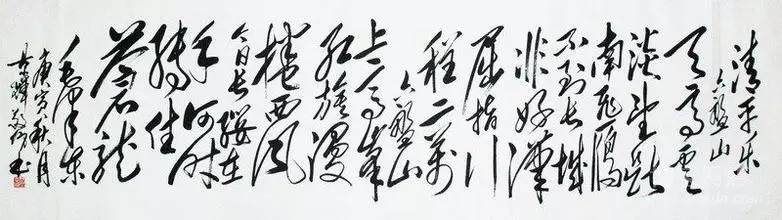 清平乐
六盤山
天高雲
淡望断
南飛鴈
不到长城
非好漢
屈指行
程二萬
六盤山
上高峰
红旗漫
捲西风
今日长缨在
手何时
缚住
蒼龙
毛泽东
庚寅秋月
书